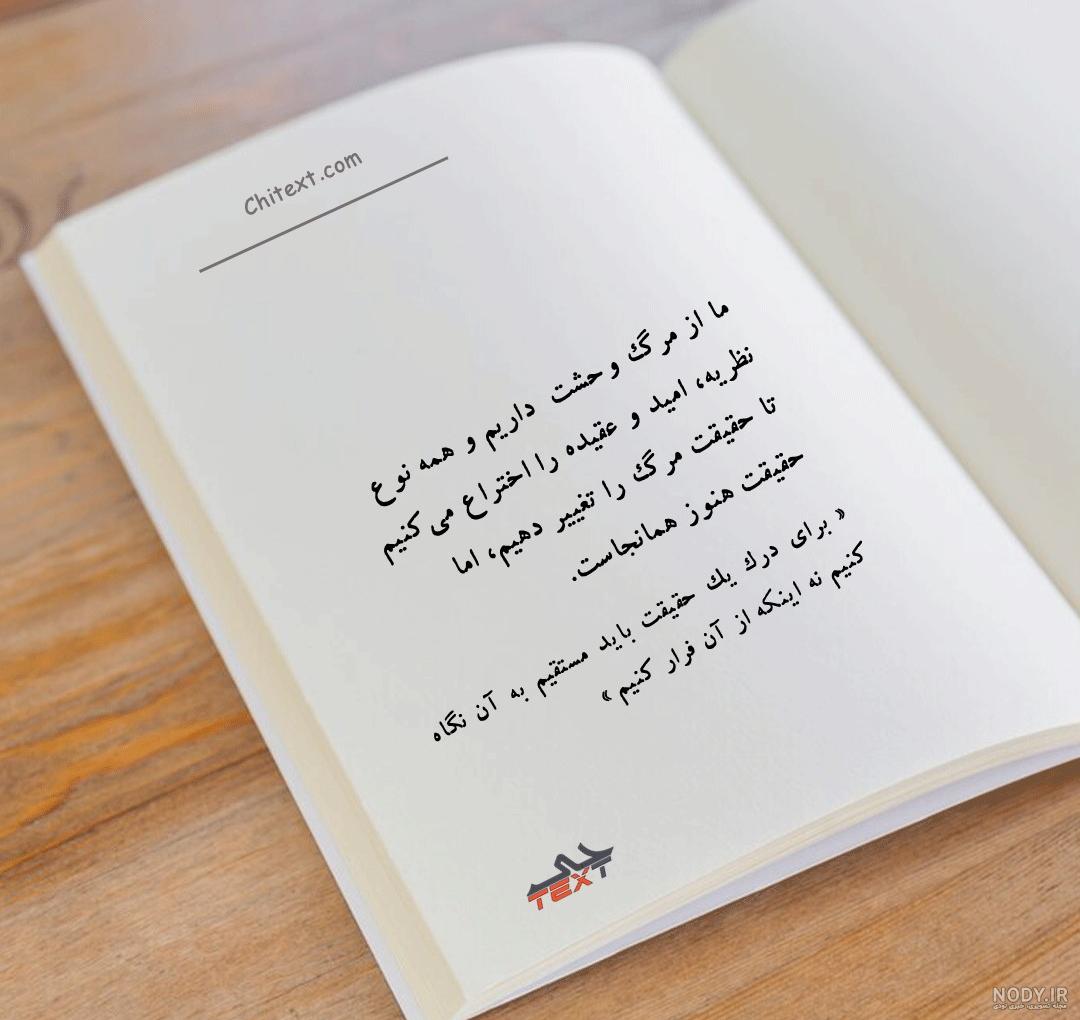 Chitext.com
ما از مرگ وحشت داریم و همه نوع
نظریه، امید و عقیده را اختراع می کنیم
تا حقیقت مرگ را تغییر دهیم، اما
حقیقت هنوز همانجاست.
« برای درك يك حقیقت باید مستقیم به آن نگاه
کنیم نه اینکه از آن فرار کنیم »
چی
TEXT
NODY.IR
مجله تصویری، خبری نودی